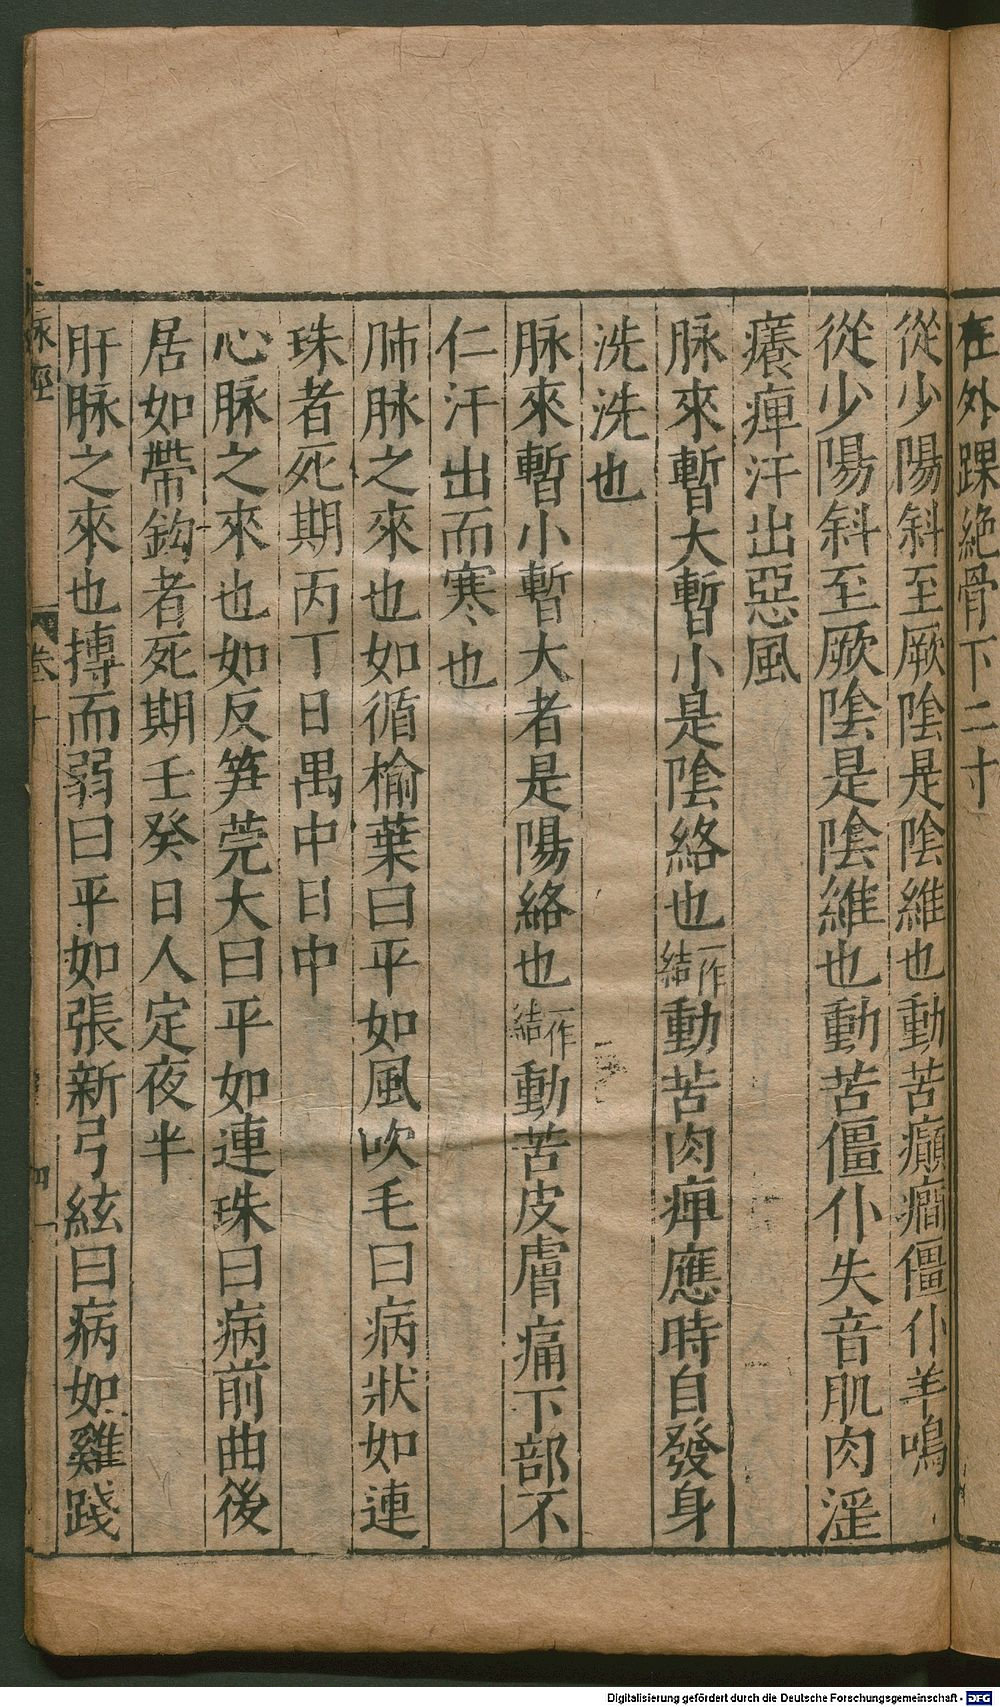 在外踝絶骨下二寸
從少陽斜至厥隂是隂維也動苦癲癇僵仆羊鳴
從少陽斜至厥隂是隂維也動苦僵仆失音肌肉淫
癢痺汗出惡風
脉來暫大暫小是隂絡也一作結動苦肉痺應時自發身
洗洗也
脉來暫小暫大者是陽絡也一作結動苦皮膚痛下部不
仁汗出而寒也
肺脉之來也如循榆葉曰平如風吹毛曰病狀如連
珠者死期丙丁日禺中日中
心脉之來也如反笋莞大曰平如連珠曰病前曲後
居如帶鈎者死期壬癸日人定夜半
肝脉之來也摶而弱曰平如張新弓絃曰病如雞踐
脉經 卷十 四
Digitalisierung gefördert durch die Deutsche Forschungsgemeinschaft - DFG